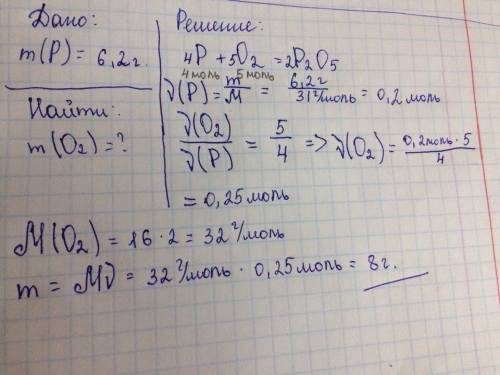 Дано:
m(P) = 6,2 г.
Найти:
m(O₂) = ?
Решение:
4P + 5O₂ = 2P₂O₅
4 моль 5 моль
ν(P) = m/M = 6,2 г/31 г/моль = 0,2 моль
ν(O₂)/ν(P) = 5/4 => ν(O₂) = 0,2 моль · 5/4
= 0,25 моль
M(O₂) = 16 · 2 = 32 г/моль
m = Mν = 32 г/моль · 0,25 моль = 8 г.